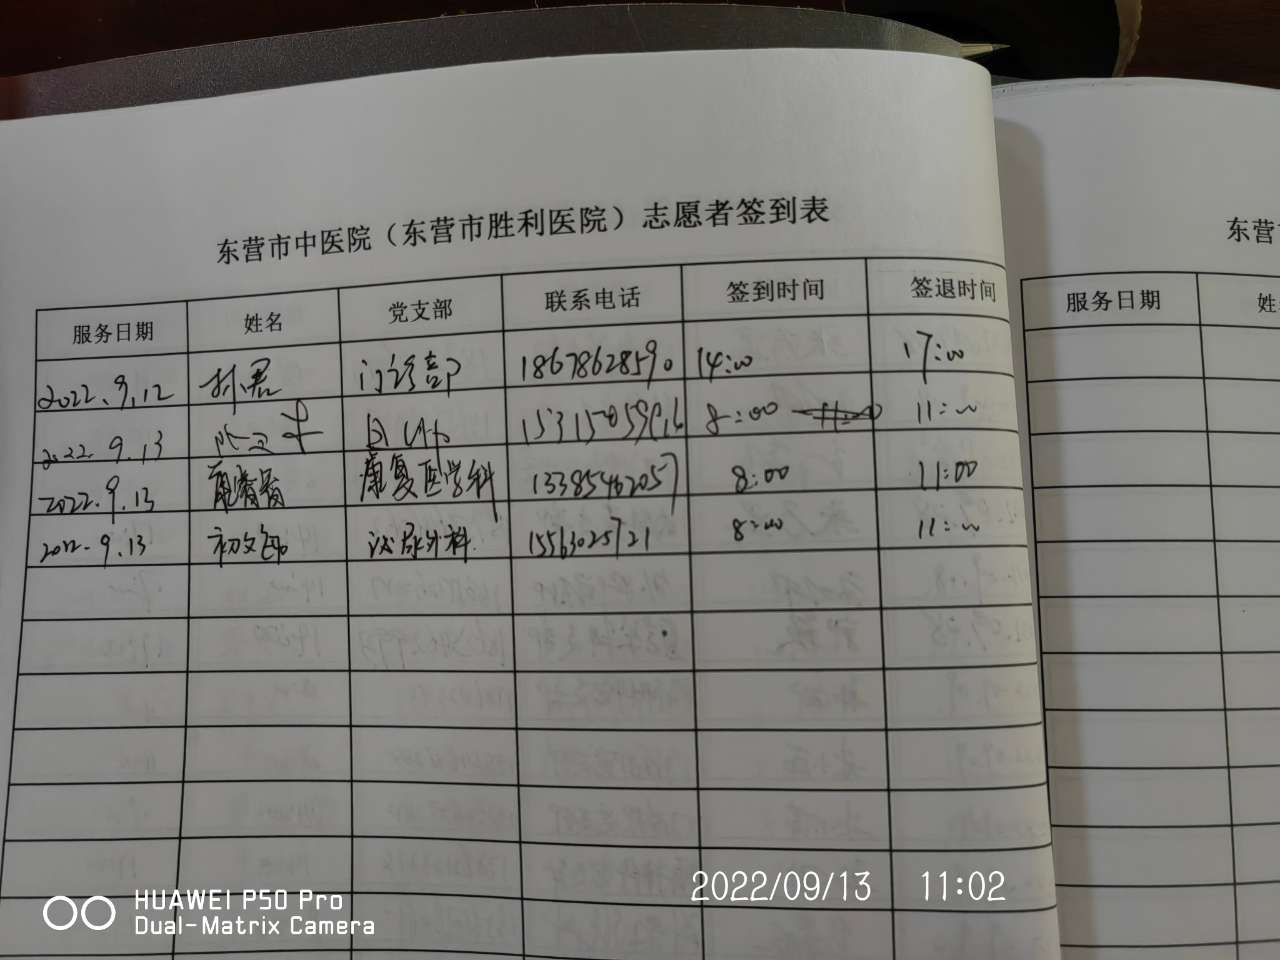 东营市中医院（东营市胜利医院）志愿者签到表
东营
服务日期 姓名 党支部 联系电话 签到时间 签退时间
服务日期 姓
2022.9.12 孙君 门诊部 18678628590 14:00 17:00
2022.9.13 8:00 11:00
2022.9.13 康复医学科 13385462057 8:00 11:00
2022.9.13 初文 泌尿外科 15563025721 8:00 11:00
HUAWEI P50 Pro
Dual-Matrix Camera
2022/09/13 11:02